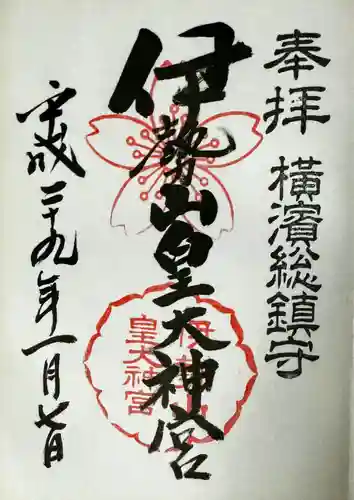 奉拝
横濱総鎮守
伊勢山皇大神宮
伊勢山
皇大神宮
平成二十九年一月七日